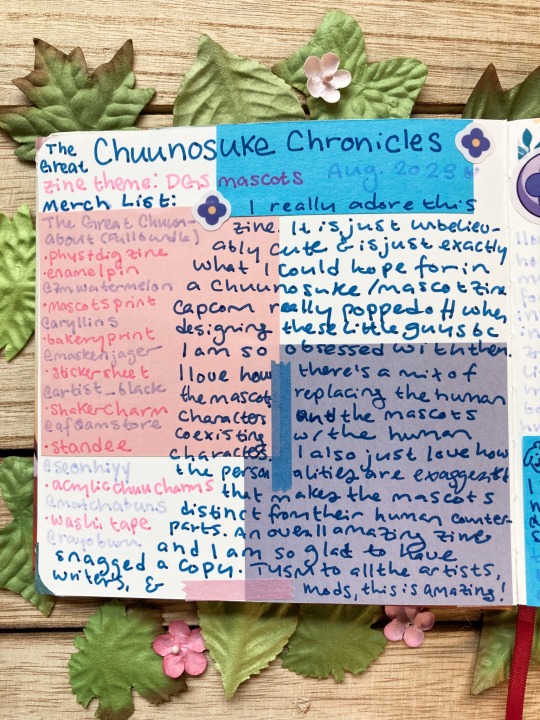 The Great Chuunosuke Chronicles
Aug.
zine theme: DGS mascots
Merch List:
The Great Chuun-
about (full bundle)
• phys+dig zine
• enamel pin
@zmwatermelon
• mascots print
@aryllins
• bakery print
@maskenjager
• sticker sheet
@artist_black
• shaker charm
@afoamstore
• standee
@seonhiyy
• acrylic chuu charms
@matchabuns
• washi tape
@rayoburn
I really adore this
zine. It is just unbeliev-
ably cute & is just exactly
what I could hope for in
a Chuunosuke/mascot zine
Capcom really popped off when
designing these little guys bc
I am so obsessed with them.
I love how there's a mix of
the mascots replacing the human
characters and the mascots
coexisting w/ the human
characters. I also just love how
the personalities are exaggerated
that makes the mascots
distinct from their human counter-
parts. An overall amazing zine
and I am so glad to have
snagged a copy. TYSM to all the artists,
writers, & mods, this is amazing!